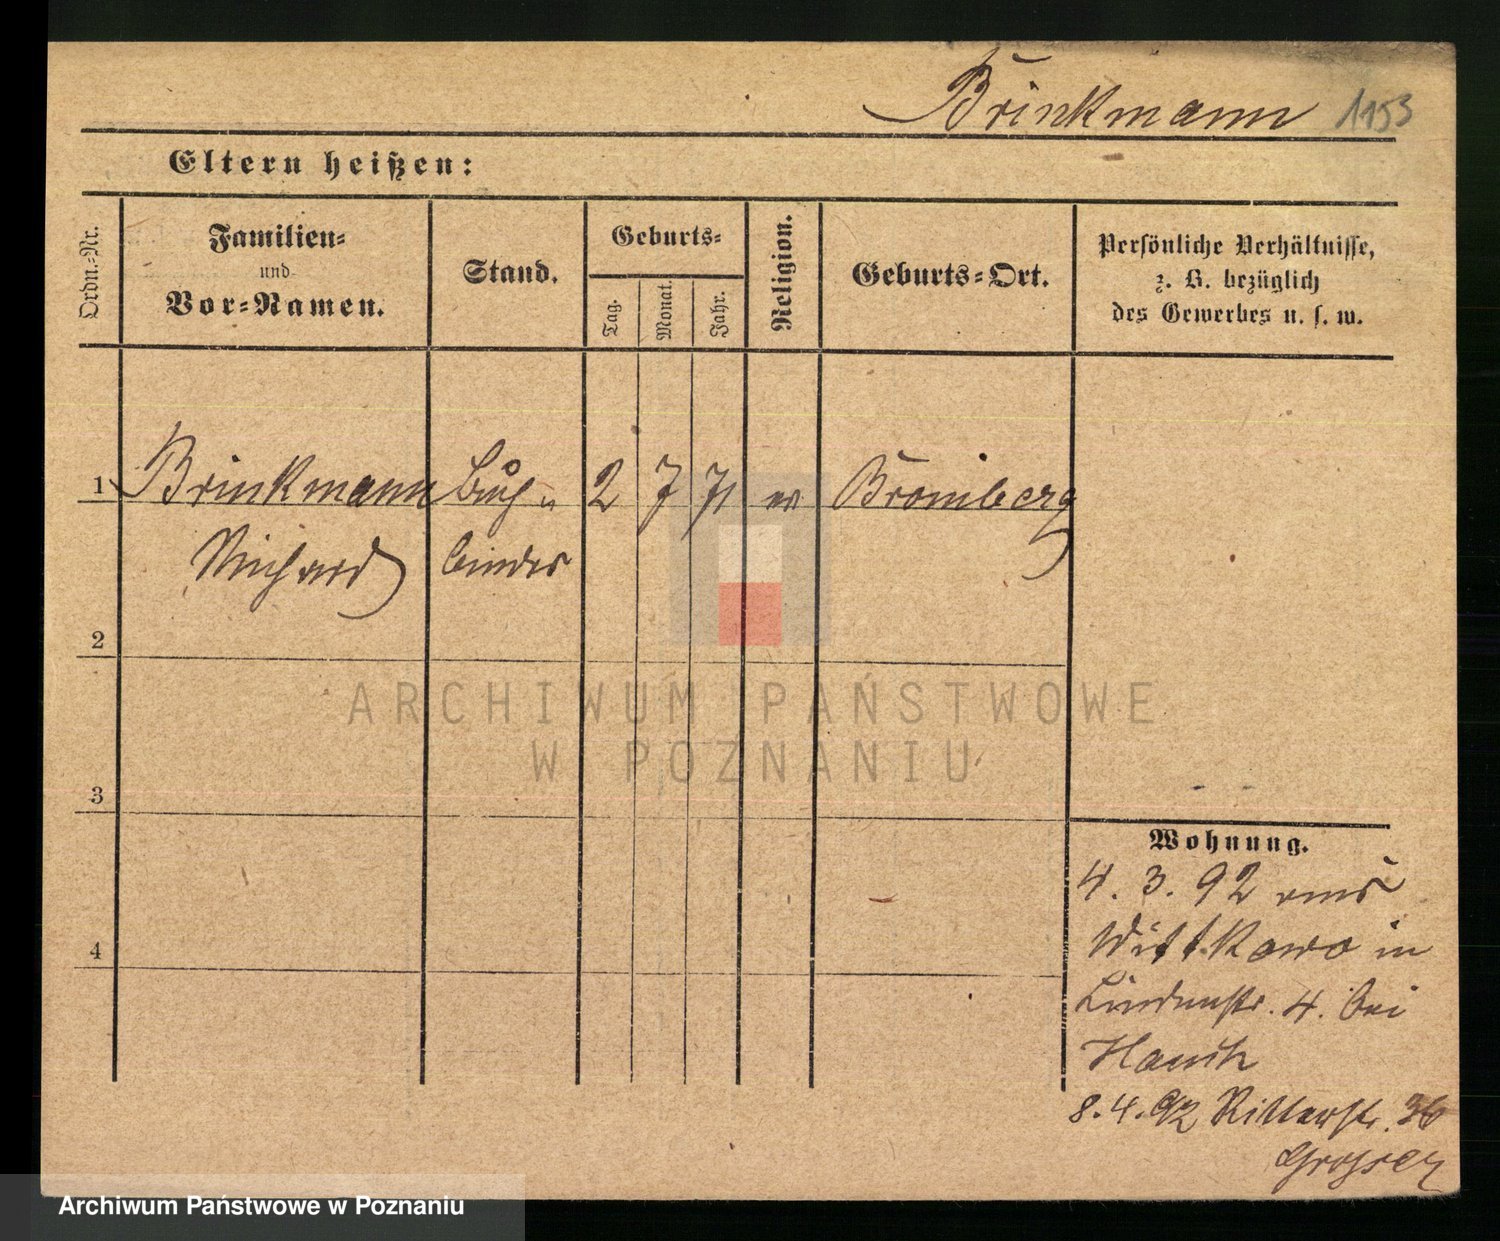 Brinkmann 1153
Eltern heißen:
Ordn.-Nr.
Familien-
und
Vor-Namen.
Stand.
Geburts-
Tag.
Monat.
Jahr.
Religion.
Geburts-Ort.
Persönliche Verhältnisse,
z. B. bezüglich
des Gewerbes u. s. w.
1 Brinkmann Buch- 2 7 71 ev Bromberg
Richard binder
2
3
4
Wohnung.
4. 3. 92 aus
Wittkowo in
Lindenstr. 4. bei
8. 4. 92 Ritterstr. 36
ARCHIWUM PAŃSTWOWE
W POZNANIU
Archiwum Państwowe w Poznaniu